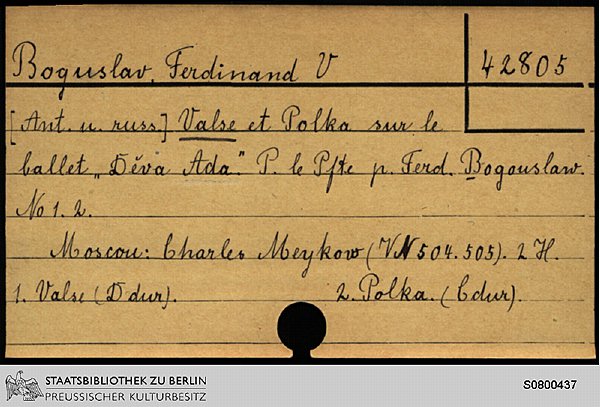 Boguslav, Ferdinand V
42805
[Ant. u. russ.] Valse et Polka sur le
ballet „Dĕva Ada." P. le Pfte p. Ferd. Bogouslaw.
No 1. 2.
Moscou: Charles Meykow (VN 504. 505). 2 H.
1. Valse (D dur). 2. Polka. (C dur).
STAATSBIBLIOTHEK ZU BERLIN
PREUSSISCHER KULTURBESITZ
S0800437